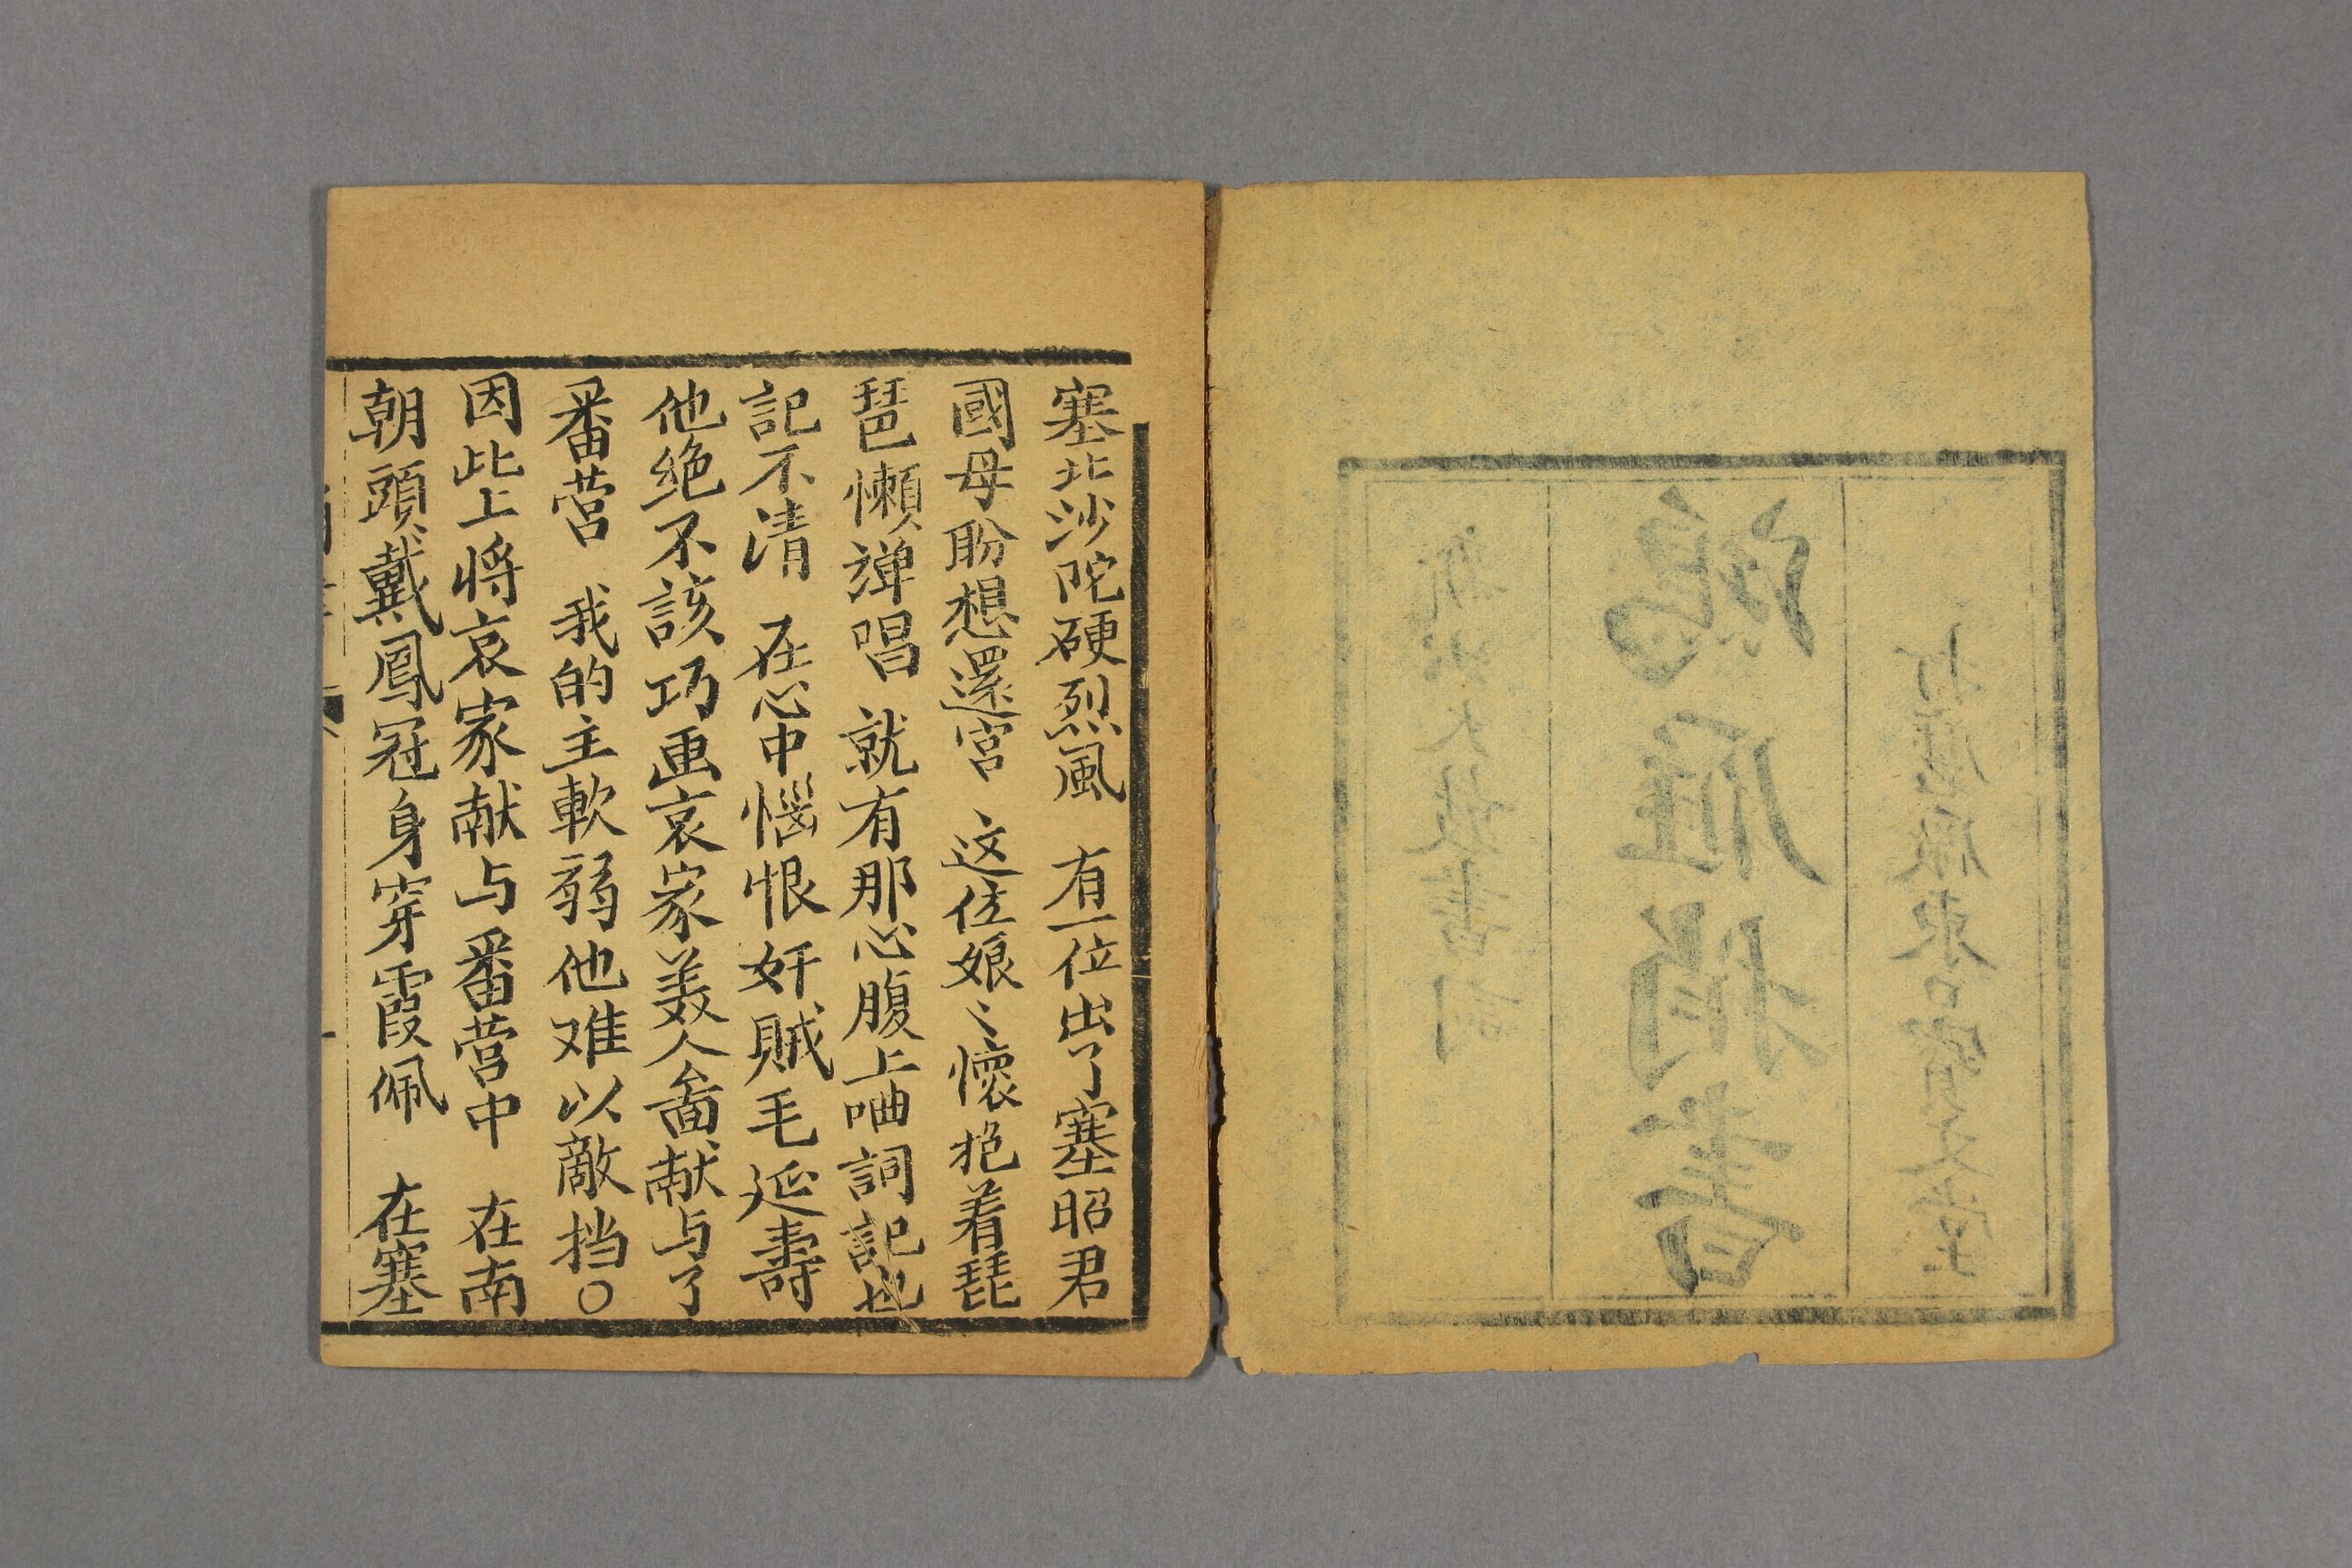 新出大鼓書詞
鴻雁捎書
打磨厰東口寶文堂
塞北沙陀硬烈風　有一位出了塞昭君
國母盼想還宮　这位娘〻懷抱着琵
琶懶弹唱　就有那心腹上詞記也
記不清　在心中惱恨奸賊毛延壽
他绝不該巧画哀家美人啚献与了
番营　我的主軟弱他难以敵挡○
因此上将哀家献与番营中　在南
朝頭戴鳳冠身穿霞佩　在塞